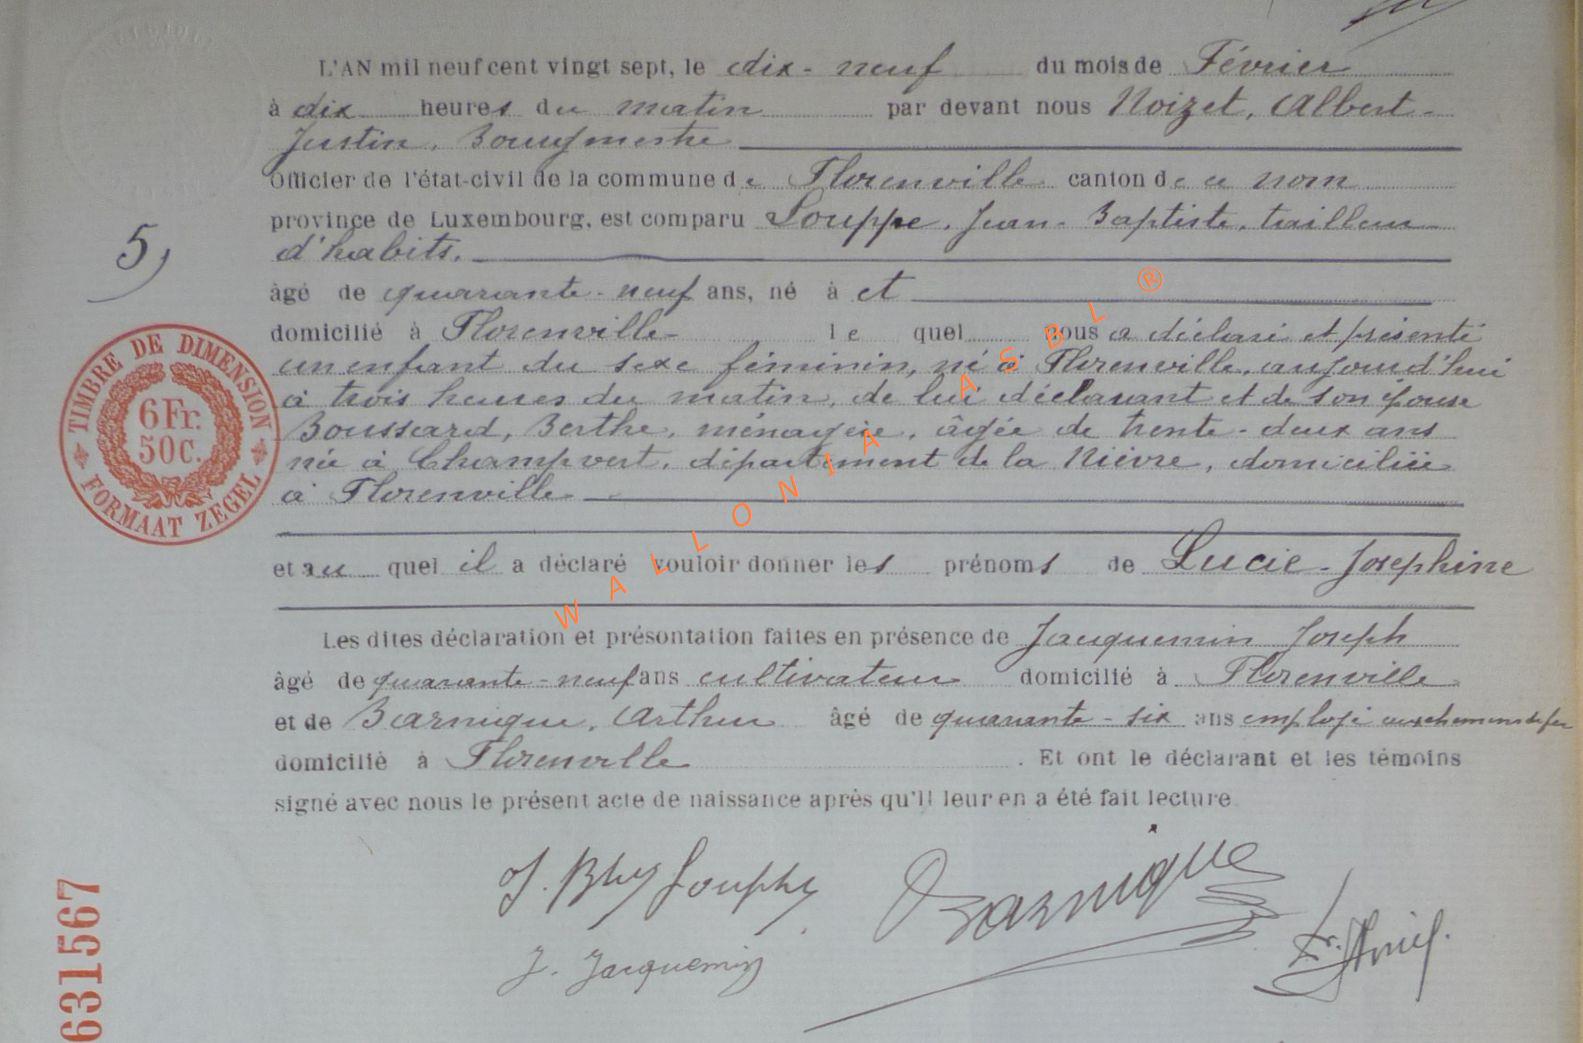 L'AN mil neuf cent vingt sept, le dix-neuf du mois de Février
à dix heures du matin par devant nous Noizet, Albert-
Justin, Bourgmestre
Officier de l'état-civil de la commune de Florenville canton de ce nom
province de Luxembourg, est comparu Souppe, Jean-Baptiste, tailleur
d'habits,
5)
âgé de quarante-neuf ans, né à et
domicilié à Florenville le quel nous a déclaré et présenté
un enfant du sexe féminin, né à Florenville, aujourd'hui
à trois heures du matin, de lui déclarant et de son épouse
Boussard, Berthe, ménagère, âgée de trente-deux ans
née à Champvert, département de la Nièvre, domiciliée
à Florenville
TIMBRE DE DIMENSION
6Fr.
50C.
FORMAAT ZEGEL
et au quel il a déclaré vouloir donner les prénoms de Lucie-Josephine
Les dites déclaration et présontation faites en présence de Jacquemin Joseph
âgé de quarante-neuf ans cultivateur domicilié à Florenville
et de Barnique, Arthur âgé de quarante-six ans employé aux chemins de fer
domicilié à Florenville . Et ont le déclarant et les témoins
signé avec nous le présent acte de naissance après qu'il leur en a été fait lecture
J. Bte Souppe
Barnique
J. Jacquemin
631567
WALLONIA ASBL ®